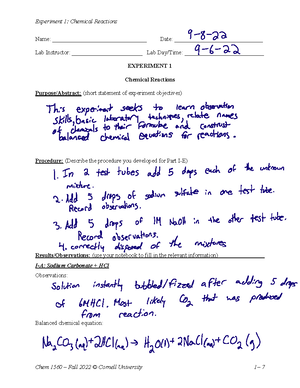 Experiment 1: Chemical Reactions
Name: Date: 9-8-22
Lab Instructor: Lab Day/Time: 9-6-22
EXPERIMENT 1
Chemical Reactions
Purpose/Abstract: (short statement of experiment objectives)
This experiment seeks to learn observation
skills, basic laboratory techniques, relate names
of chemicals to their formulae and construct
balanced chemical equations for reactions.
Procedure: (Describe the procedure you developed for Part I-E)
1. In 2 test tubes add 5 drops each of the unknown
mixture.
2. Add 5 drops of sodium sulfate in one test tube.
Record observations.
3. Add 5 drops of 1M NaOH in the other test tube.
Record observations.
4. correctly disposed of the mixtures
Results/Observations: (use your notebook to fill in the relevant information)
I-A: Sodium Carbonate + HCl
Observations:
Solution instantly bubbled/fizzed after adding 5 drops
of 6M HCl. Most likely CO2 that was produced
from reaction.
Balanced chemical equation:
Na2CO3(aq) + 2HCl(aq) → H2O(l) + 2NaCl(aq) + CO2(g)
Chem 1560 – Fall 2022 © Cornell University 1 – 7